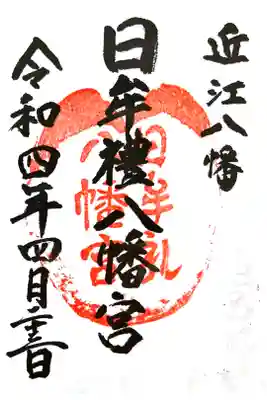 近江八幡
日牟禮八幡宮
日牟礼
八幡宮
令和四年四月吉日